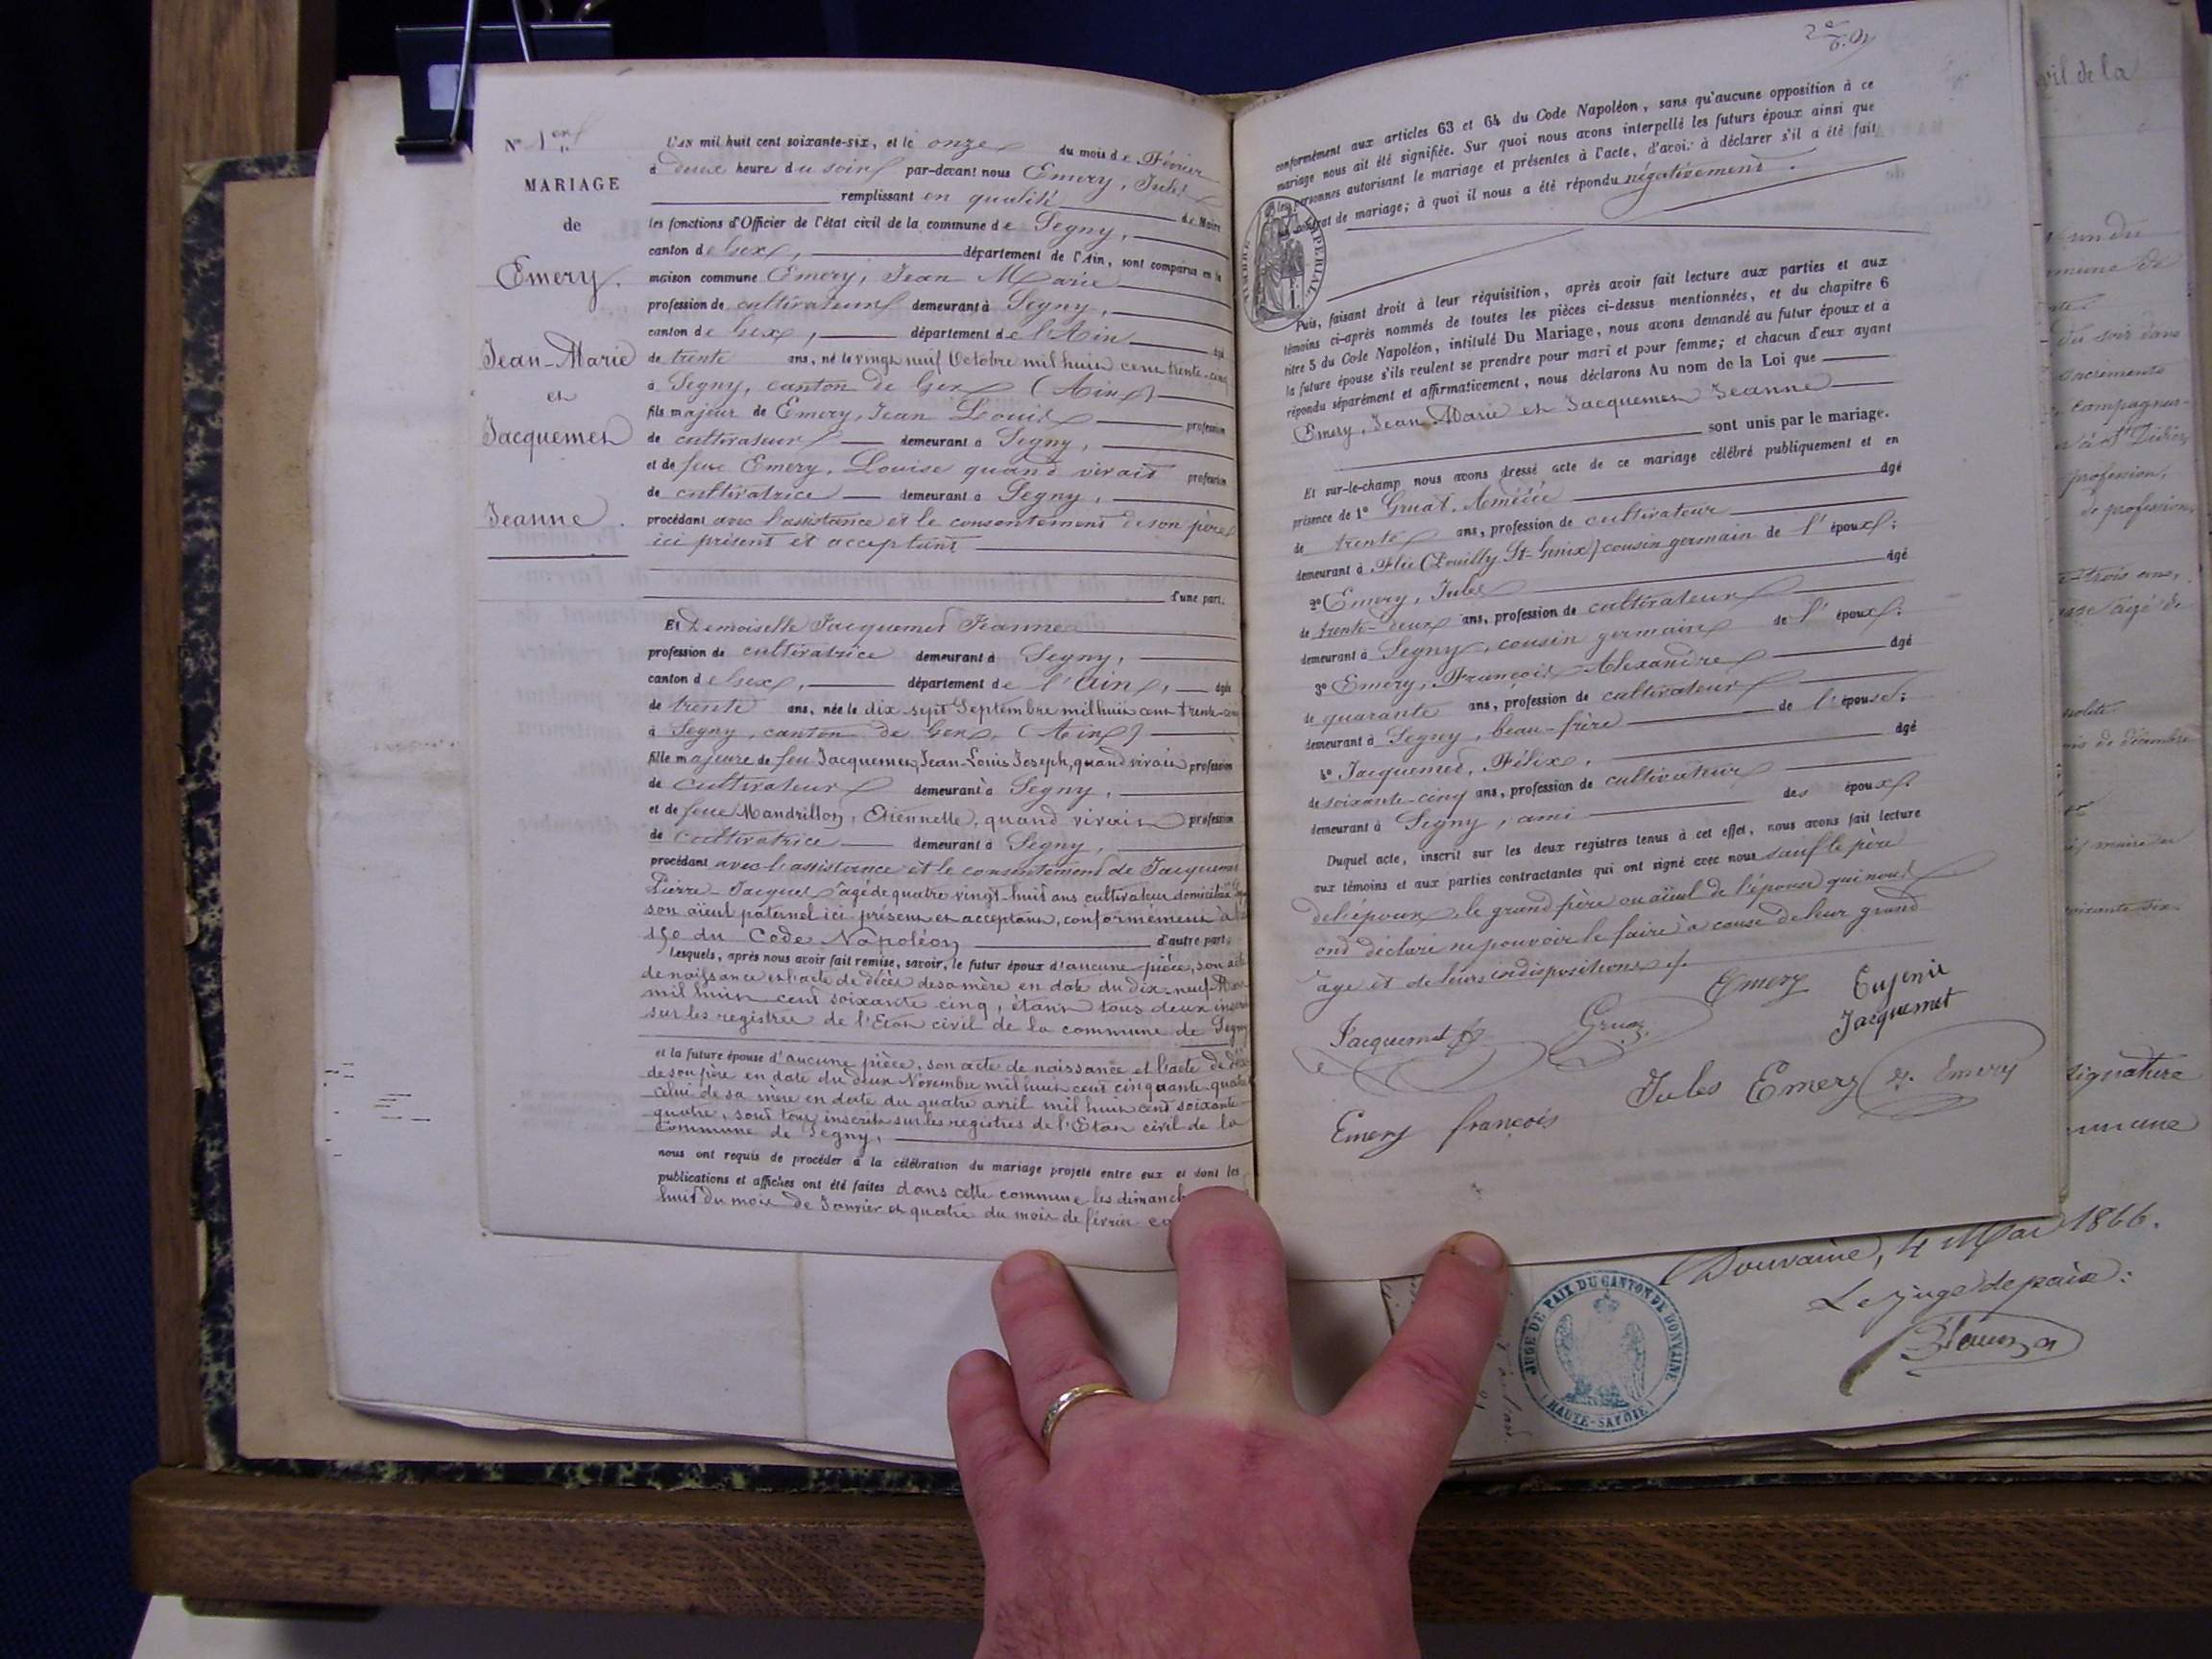 N° 1er
MARIAGE
de
Emery.
Jean-Marie
et
Jacquemet
Jeanne.
L'AN mil huit cent soixante-six, et le onze du mois de Février
à deux heures du soir par-devant nous Emery, Jules
remplissant en qualité de Maire
les fonctions d'Officier de l'état civil de la commune de Segny,
canton de Gex, département de l'Ain, sont comparus en la
maison commune Emery, Jean Marie
profession de cultivateur demeurant à Segny,
canton de Gex, département de l'Ain âgé
de trente ans, né le vingt neuf Octobre mil huit cent trente-cinq
à Segny, canton de Gex (Ain)
fils majeur de Emery, Jean Louis profession
de cultivateur demeurant à Segny,
et de feue Emery, Louise quand vivait profession
de cultivatrice demeurant à Segny,
procédant avec l'assistance et le consentement de son père
ici présent et acceptant
d'une part.
Et Demoiselle Jacquemet Jeanne
profession de cultivatrice demeurant à Segny,
canton de Gex, département de l'Ain, âgée
de trente ans, née le dix sept Septembre mil huit cent trente-cinq
à Segny, canton de Gex, (Ain)
fille majeure de feu Jacquemet, Jean-Louis Joseph, quand vivait profession
de cultivateur demeurant à Segny,
et de feue Mandrillon, Etiennette, quand vivait profession
de cultivatrice demeurant à Segny,
procédant avec l'assistance et le consentement de Jacquemet
Pierre-Jacques âgé de quatre vingt-huit ans cultivateur domicilié
son aïeul paternel ici présent et acceptant, conformément à
150 du Code Napoléon d'autre part;
Lesquels, après nous avoir fait remise, savoir, le futur époux d'aucune pièce, son acte
de naissance et l'acte de décès de sa mère en date du dix-neuf
mil huit cent soixante cinq, étant tous deux inscrits
sur les registres de l'Etat civil de la commune de Segny
et la future épouse d'aucune pièce, son acte de naissance et l'acte de décès
de son père en date du deux Novembre mil huit cent cinquante-quatre
celui de sa mère en date du quatre avril mil huit cent soixante
quatre, sont tous inscrits sur les registres de l'Etat civil de la
commune de Segny,
nous ont requis de procéder à la célébration du mariage projeté entre eux et dont les
publications et affiches ont été faites dans cette commune les dimanch
huit du mois de Janvier et quatre du mois de février
conformément aux articles 63 et 64 du Code Napoléon, sans qu'aucune opposition à ce
mariage nous ait été signifiée. Sur quoi nous avons interpellé les futurs époux ainsi que
les personnes autorisant le mariage et présentes à l'acte, d'avoir à déclarer s'il a été fait
contrat de mariage; à quoi il nous a été répondu négativement.
TIMBRE IMPÉRIAL
Puis, faisant droit à leur réquisition, après avoir fait lecture aux parties et aux
témoins ci-après nommés de toutes les pièces ci-dessus mentionnées, et du chapitre 6
titre 5 du Code Napoléon, intitulé Du Mariage, nous avons demandé au futur époux et à
la future épouse s'ils veulent se prendre pour mari et pour femme; et chacun d'eux ayant
répondu séparément et affirmativement, nous déclarons Au nom de la Loi que
Emery, Jean Marie et Jacquemet Jeanne
sont unis par le mariage.
Et sur-le-champ nous avons dressé acte de ce mariage célébré publiquement et en
présence de 1° Gruat, Amédée âgé
de trente ans, profession de cultivateur
demeurant à Flie (Pouilly St-Genix) cousin germain de l'époux;
2° Emery, Jules âgé
de trente-deux ans, profession de cultivateur
demeurant à Segny, cousin germain de l'époux;
3° Emery, François Alexandre âgé
de quarante ans, profession de cultivateur
demeurant à Segny, beau-frère de l'épouse;
4° Jacquemet, Félix, âgé
de soixante-cinq ans, profession de cultivateur
demeurant à Segny, ami des époux.
Duquel acte, inscrit sur les deux registres tenus à cet effet, nous avons fait lecture
aux témoins et aux parties contractantes qui ont signé avec nous sauf le père
de l'époux, le grand père ou aïeul de l'épouse qui nous
ont déclaré ne pouvoir le faire à cause de leur grand
âge et de leurs indispositions.
Emery Eugenie
Jacquemet
Jacquemet Gruaz
Jules Emery J. Emery
Emery françois
Douvaine, 4 Mai 1866.
Le juge de paix:
JUGE DE PAIX DU CANTON DE DONVAINE
(HAUTE-SAVOIE)
vil de la
du soir dans
sacrements
campagnes
profession,
de profession
trois ans,
âgé de
de décembre
maire de
soixante six
signature